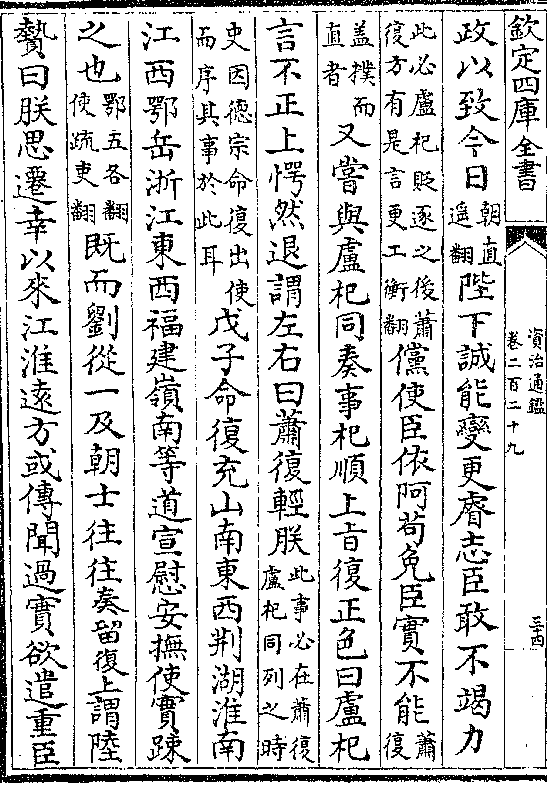 欽定四庫全書
資治通鑑
卷二百二十九
三十四
政以致今日朝直遥翻陛下誠能變更睿志臣敢不竭力
此必盧杞貶逐之後蕭復方有是言更工衡翻儻使臣依阿苟免臣實不能蕭復
盖樸而直者又嘗與盧杞同奏事杞順上旨復正色曰盧杞
言不正上愕然退謂左右曰蕭復輕朕此事必在蕭復盧杞同列之時
史因德宗命復出使而序其事於此耳戊子命復充山南東西荆湖淮南
江西鄂岳浙江東西福建嶺南等道宣慰安撫使實踈
之也鄂五各翻使疏吏翻既而劉從一及朝士往往奏留復上謂陸
贄曰朕思遷幸以來江淮逺方或傳聞過實欲遣重臣